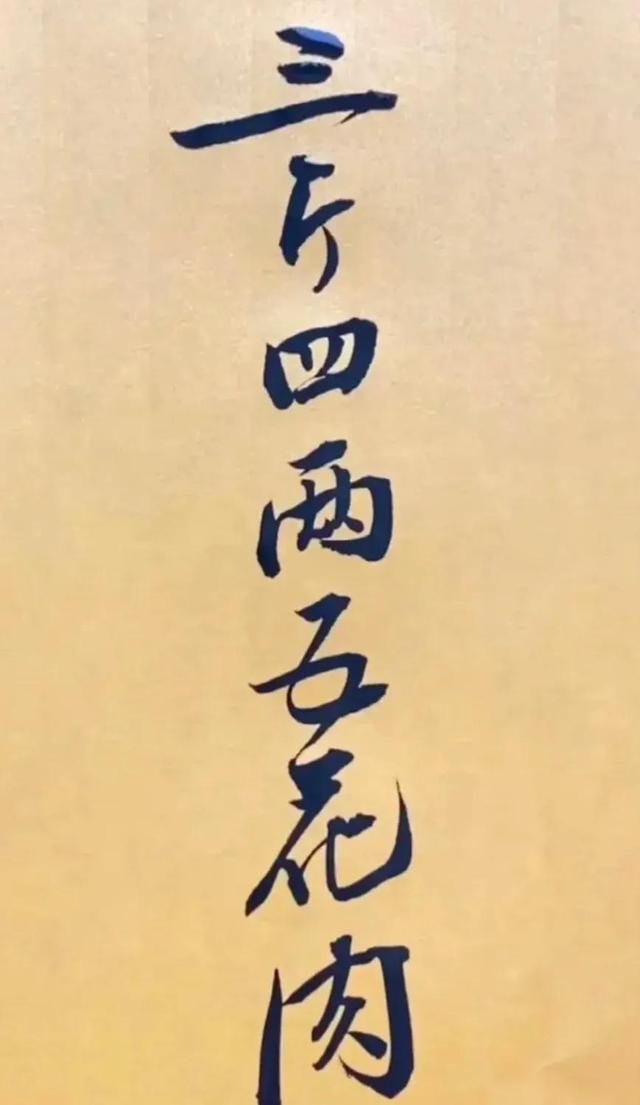 三斤四两五花肉